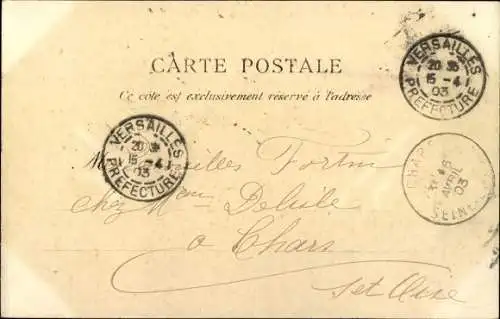 CARTE POSTALE
Ce côté est exclusivement réservé à l'adresse
VERSAILLES
20 35
15 -4
03
PREFECTURE
VERSAILLES
20
15 -4
03
PREFECTURE
CHARS
AVRIL
03
SEINE
Fortin
chez Mme Delisle
à Chars
Set Oise